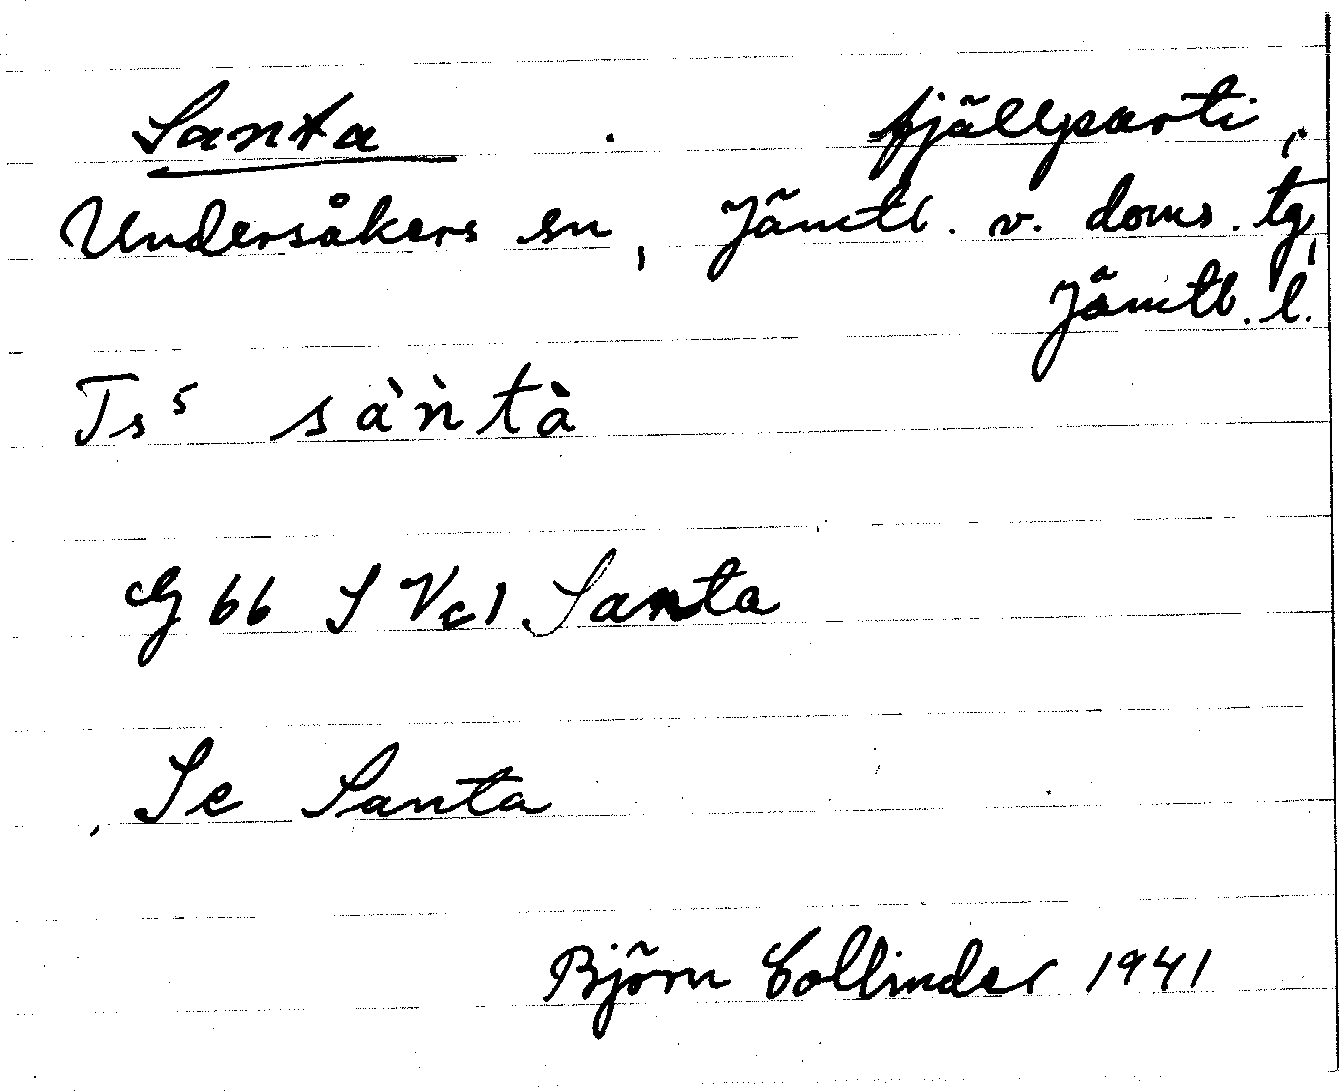 Santa . fjällparti,
Undersåkers sn, Jämtl. v. doms. tg,
Jämtl. l.
Ts⁵ sàǹtà
G 66 S Vc1 Santa
Se Santa
Björn Collinder 1941